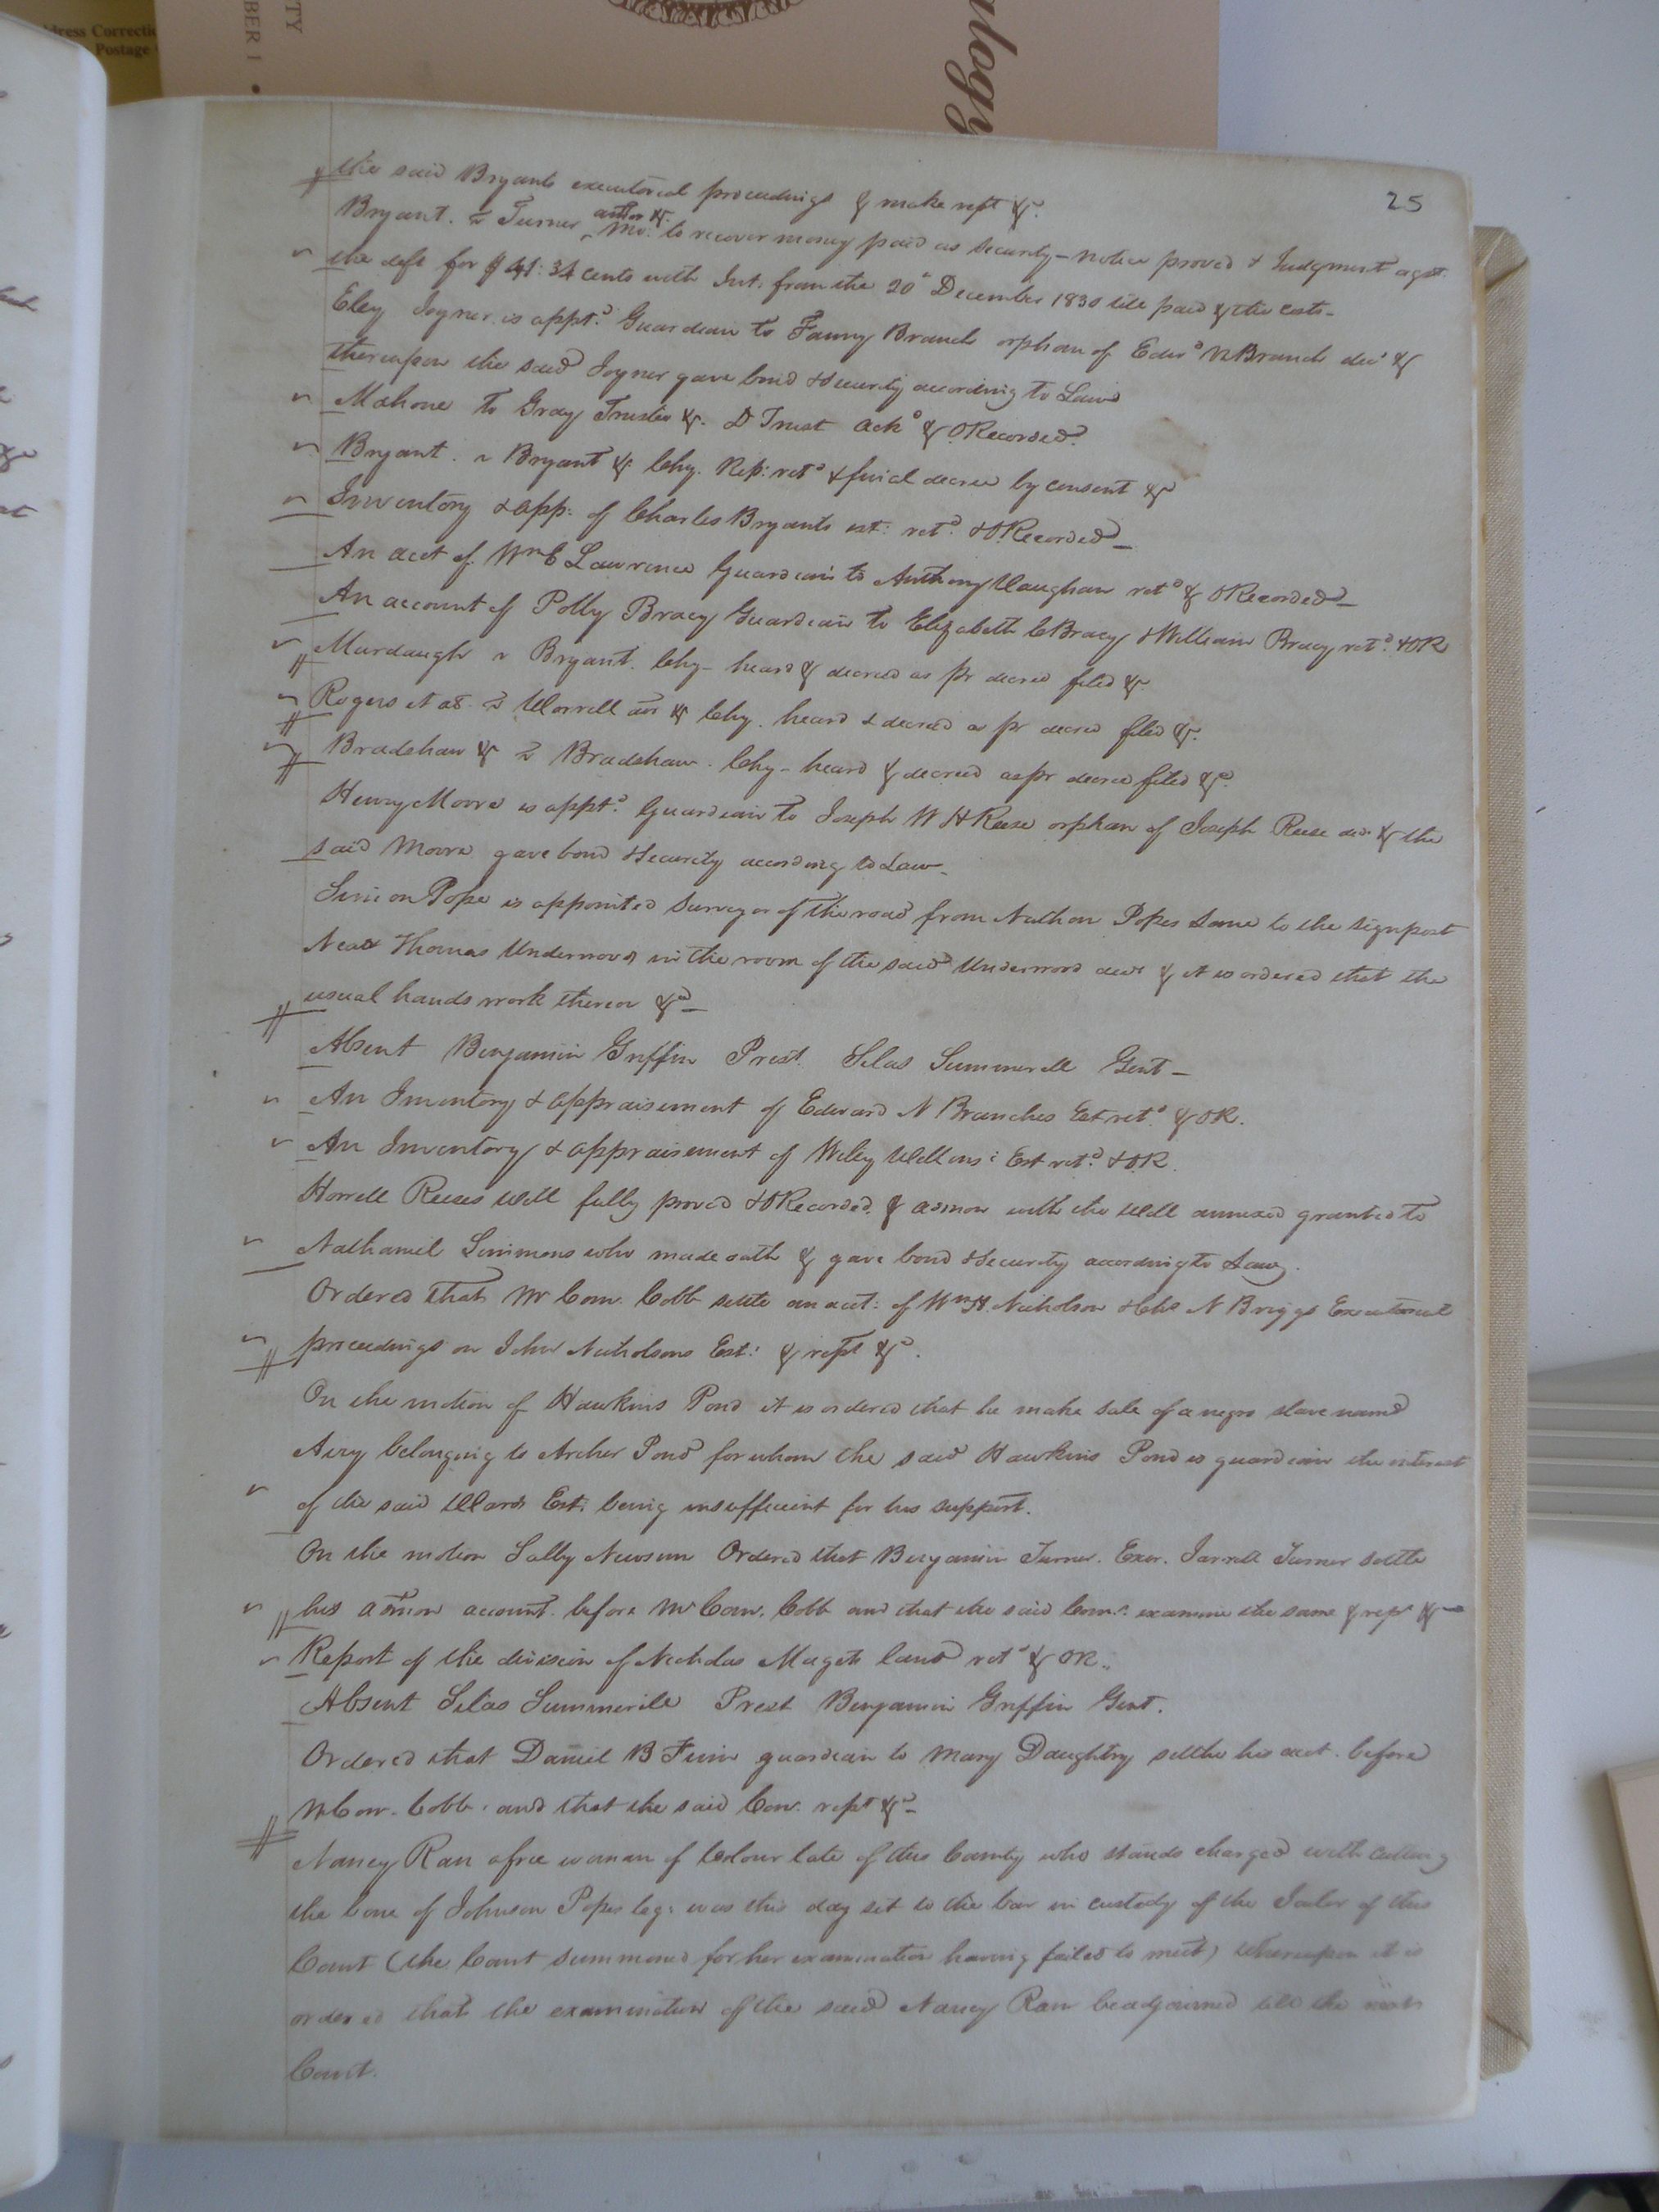 dress Correctio
Postage
TY
BER I •
ulogy
25
the said Bryants executorial proceedings & make rept &c.
Bryant. vs Turner admor &c. Mo. to recover money paid as security – notice proved & Judgment agst.
the deft for $41:34 cents with Int. from the 20th December 1830 till paid & the costs –
Eley Joyner is apptd. Guardian to Fanny Branch orphan of Edwd N Branch decd &
thereupon the said Joyner gave bond & Security according to Law
Mahone to Gray Trustee &c. D Trust Ackd & O Recorded.
Bryant. v Bryant &c. Chy. Rep: retd & final decree by consent &c
Inventory & app: of Charles Bryants est: retd. & O. Recorded –
An acct of Wm E Lawrence Guardian to Anthony Vaughan retd & O Recorded –
An account of Polly Bracy Guardian to Elizabeth C Bracy & William Bracy retd. & OR
Murdaugh v Bryant. Chy – heard & decreed as pr decree filed &c
Rogers et als. vs Worrell &c Chy. heard & decreed as pr decree filed &c.
Bradshaw &c vs Bradshaw. Chy – heard & decreed as pr decree filed &c.
Henry Moore is apptd. Guardian to Joseph W H Reese orphan of Joseph Reese decd & the
said Moore gave bond & Security according to Law –
Simon Pope is appointed Surveyor of the road from Nathan Popes Lane to the sign post
Near Thomas Underwood in the room of the said Underwood decd & it is ordered that the
usual hands work thereon &c –
Absent Benjamin Griffin Prest. Silas Summerell Gent –
An Inventory & appraisement of Edward N Branches Est retd. & OR.
An Inventory & appraisement of Wiley Wellons: Est retd. & O.R.
Howell Reeses Will fully proved & O Recorded. & admon with the Will annexed granted to
Nathaniel Simmons who made oath & gave bond & Security according to Law.
Ordered that Mr Com. Cobb settle an acct: of Wm H. Nicholson & Chs N Briggs Executorial
proceedings on John Nicholsons Est: & rept &c.
On the motion of Hawkins Pond it is ordered that he make sale of a negro slave named
Airy belonging to Archer Pond for whom the said Hawkins Pond is guardian the interest
of the said Wards Est. being insufficient for his support.
On the motion Sally Newsum Ordered that Benjamin Turner. Exor. Jarrell Turner settle
his admon account. before Mr Com. Cobb and that the said Comr. examine the same & rept &c –
Report of the division of Nicholas Magets land retd & OR..
Absent Silas Summerill Prest Benjamin Griffin Gent.
Ordered that Daniel B guardian to Mary Daughtry settle his acct. before
Mr Com. Cobb. and that the said Com. rept &c –
Nancy Ran a free woman of Colour late of this County who stands charged with cutting
the bone of Johnson Popes leg: was this day set to the bar in custody of the Jailor of this
Court (the Court summoned for her examination having failed to meet) Whereupon it is
ordered that the examination of the said Nancy Ran be adjourned till the next
Court.